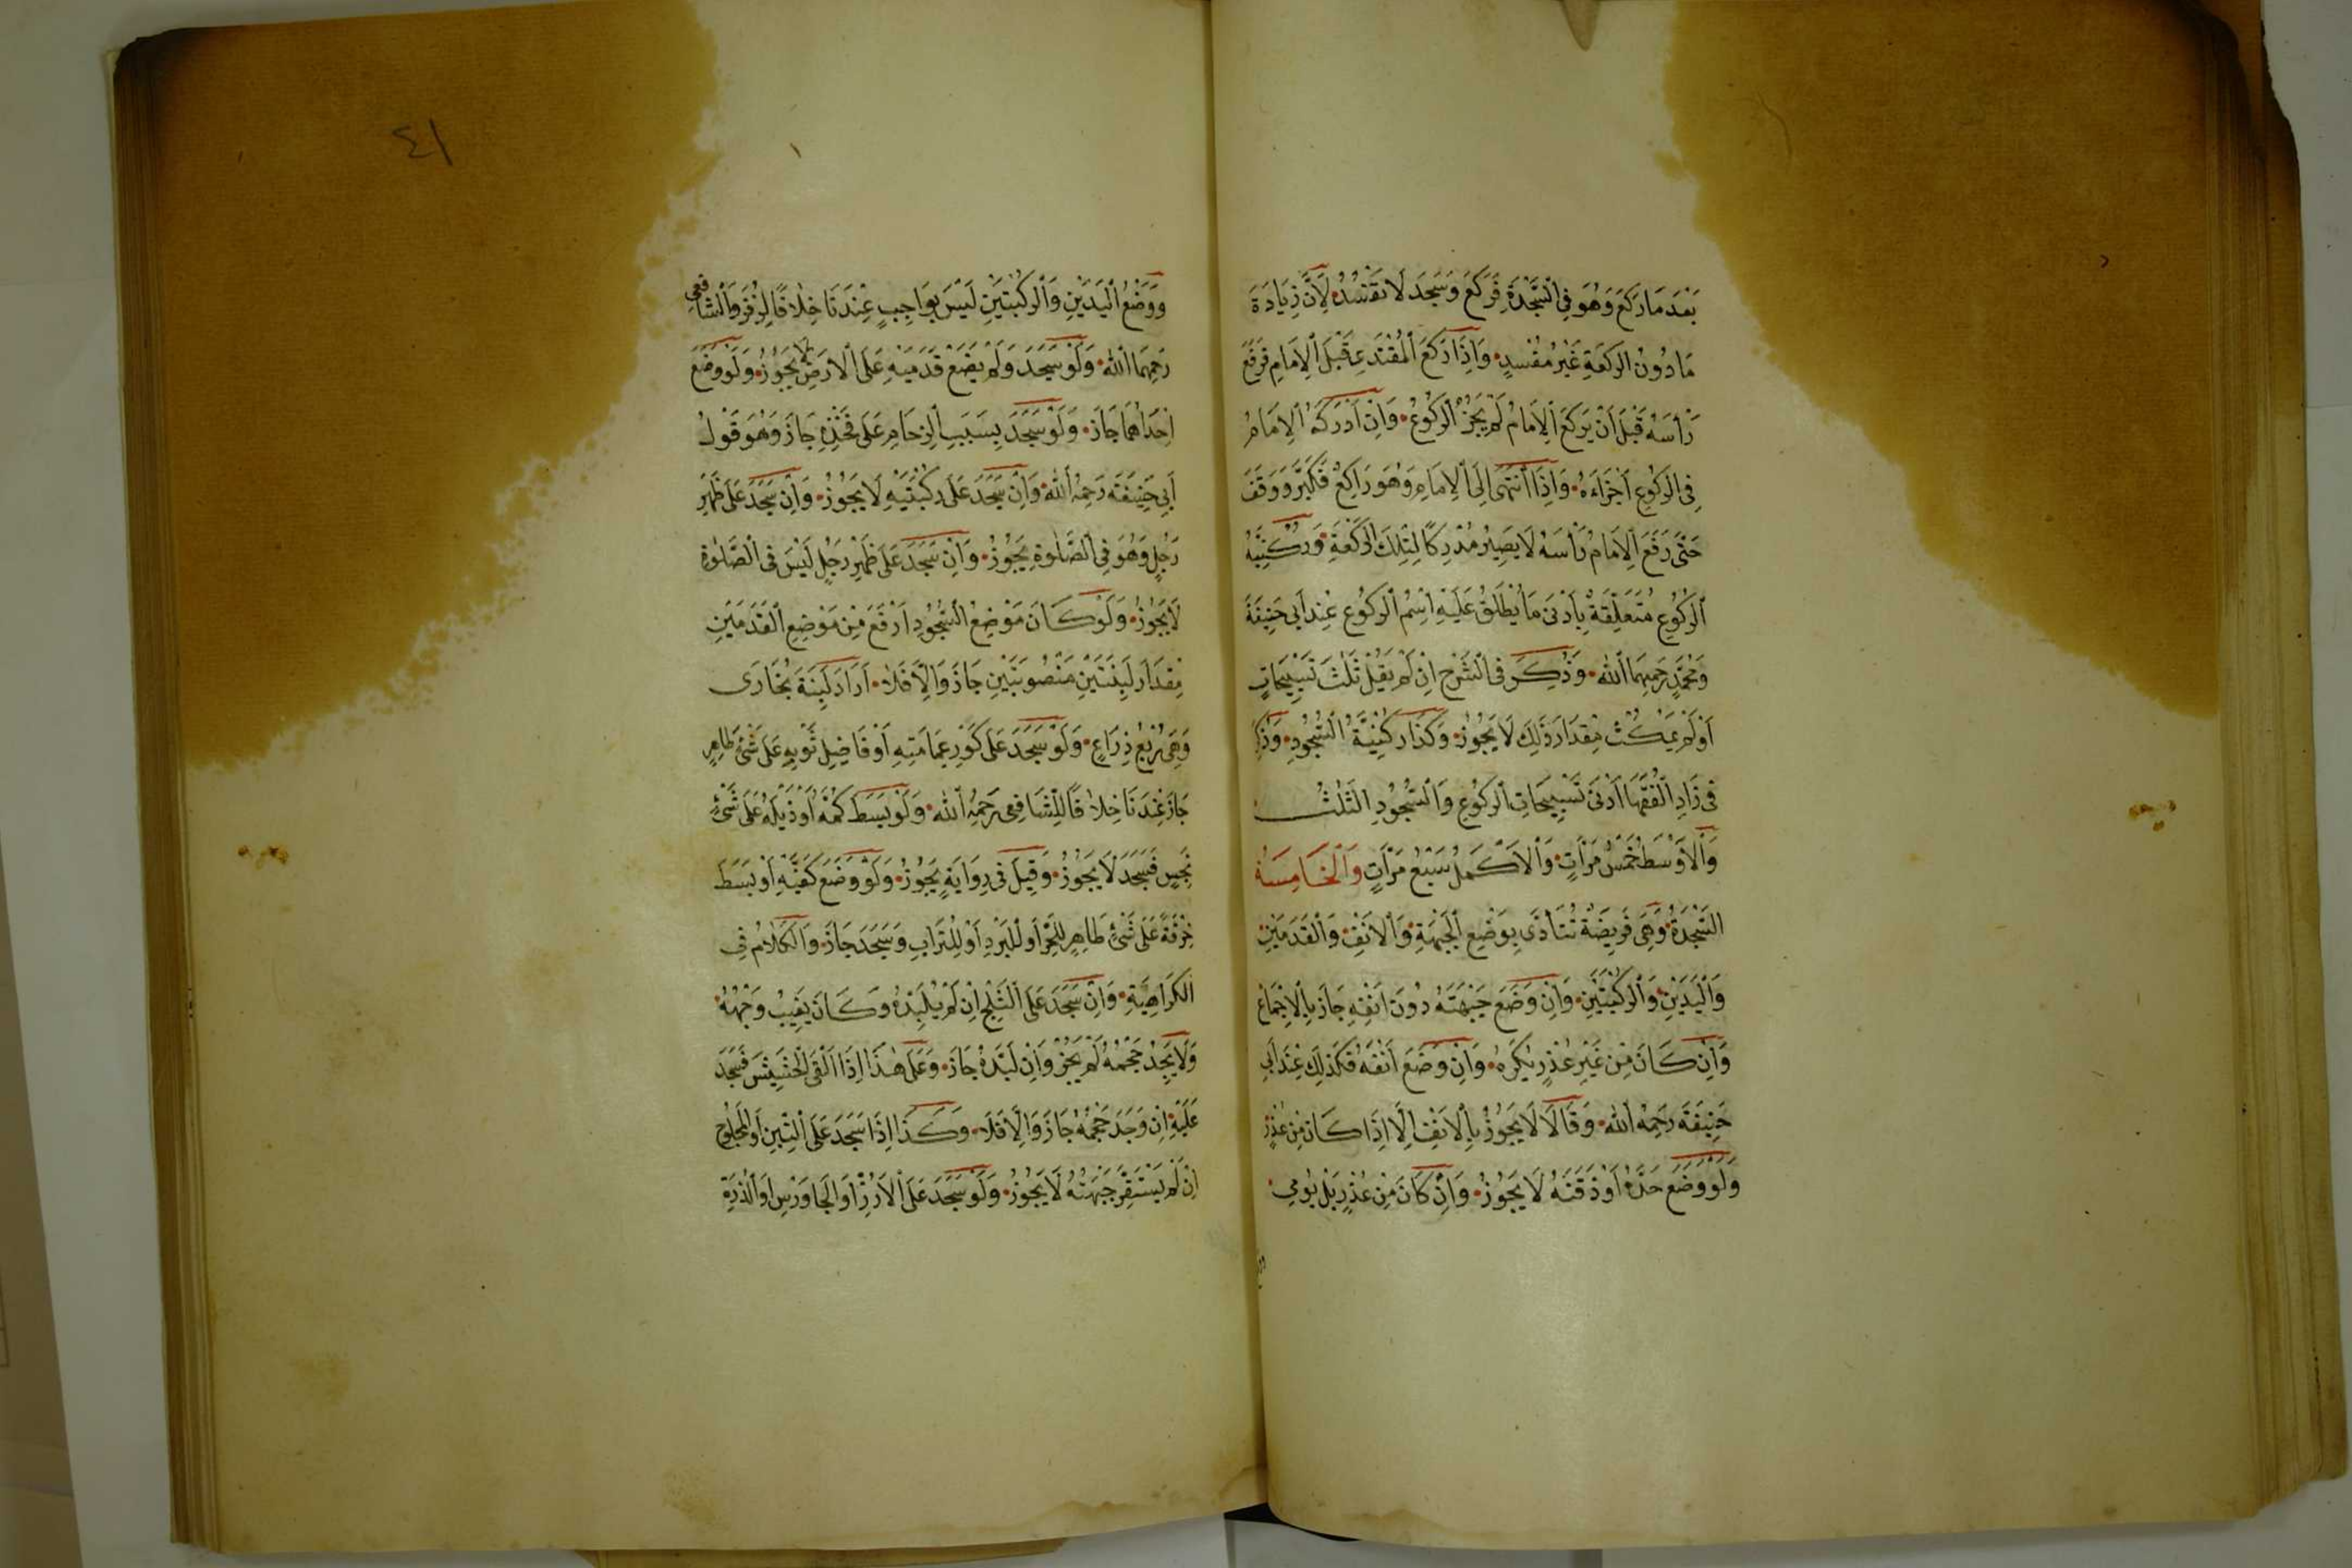 بَعْدَ مَا رَكَعَ وَهُوَ فِي السَّجْدَةِ فَرَكَعَ وَسَجَدَ لَا تَفْسُدُ لِأَنَّ زِيَادَةَ
مَا دُونَ الرَّكْعَةِ غَيْرُ مُفْسِدٍ وَإِذَا رَكَعَ الْمُقْتَدِي قَبْلَ الْإِمَامِ فَرَفَعَ
رَأْسَهُ قَبْلَ أَنْ يَرْكَعَ الْإِمَامُ لَمْ يَجُزِ الرُّكُوعُ وَإِنْ أَدْرَكَهُ الْإِمَامُ
فِي الرُّكُوعِ أَجْزَاءَهُ وَإِذَا انْتَهَى إِلَى الْإِمَامِ وَهُوَ رَاكِعٌ فَكَبَّرَ وَوَقَفَ
حَتَّى رَفَعَ الْإِمَامُ رَأْسَهُ لَا يَصِيرُ مُدْرِكًا لِتِلْكَ الرَّكْعَةِ وَرُكْنِيَّةُ
الرُّكُوعِ مُتَعَلِّقَةٌ بِأَدْنَى مَا يُطْلَقُ عَلَيْهِ اسْمُ الرُّكُوعِ عِنْدَ أَبِي حَنِيفَةَ
وَمُحَمَّدٍ رَحِمَهُمَا اللهُ وَذُكِرَ فِي الشَّرْحِ إِنْ لَمْ يَقُلْ ثَلٰثَ تَسْبِيحَاتٍ
أَوْ لَمْ يَمْكُثْ مِقْدَارَ ذٰلِكَ لَا يَجُوزُ وَكَذَا رُكْنِيَّةُ السُّجُودِ وَذُكِرَ
فِي زَادِ الْفُقَهَا أَدْنَى تَسْبِيحَاتِ الرُّكُوعِ وَالسُّجُودِ الثَّلٰثُ
وَالْأَوْسَطُ خَمْسُ مَرَّاتٍ وَالْأَكْمَلُ سَبْعُ مَرَّاتٍ وَالْخَامِسَةُ
السَّجْدَةُ وَهِيَ فَرِيضَةٌ تُتَأَدَّى بِوَضْعِ الْجَبْهَةِ وَالْأَنْفِ وَالْقَدَمَيْنِ
وَالْيَدَيْنِ وَالرُّكْبَتَيْنِ وَإِنْ وَضَعَ جَبْهَتَهُ دُونَ أَنْفِهِ جَازَ بِالْإِجْمَاعِ
وَإِنْ كَانَ مِنْ غَيْرِ عُذْرٍ يُكْرَهُ وَإِنْ وَضَعَ أَنْفَهُ فَكَذٰلِكَ عِنْدَ أَبِي
حَنِيفَةَ رَحِمَهُ اللهُ وَقَالَا لَا يَجُوزُ بِالْأَنْفِ إِلَّا إِذَا كَانَ مِنْ عُذْرٍ
وَلَوْ وَضَعَ خَدَّهُ أَوْ ذَقَنَهُ لَا يَجُوزُ وَإِنْ كَانَ مِنْ عُذْرٍ بَلْ يُومِي
٤١
وَوَضْعُ الْيَدَيْنِ وَالرُّكْبَتَيْنِ لَيْسَ بِوَاجِبٍ عِنْدَنَا خِلَافًا لِزُفَرَ وَالشَّافِعِي
رَحِمَهُمَا اللهُ وَلَوْ سَجَدَ وَلَمْ يَضَعْ قَدَمَيْهِ عَلَى الْأَرْضِ لَا يَجُوزُ وَلَوْ وَضَعَ
إِحْدَاهُمَا جَازَ وَلَوْ سَجَدَ بِسَبَبِ الزِّحَامِ عَلَى فَخْذِهِ جَازَ وَهُوَ قَوْلُ
أَبِي حَنِيفَةَ رَحِمَهُ اللهُ وَإِنْ سَجَدَ عَلَى رُكْبَتَيْهِ لَا يَجُوزُ وَإِنْ سَجَدَ عَلَى ظَهْرِ
رَجُلٍ وَهُوَ فِي الصَّلٰوةِ يَجُوزُ وَإِنْ سَجَدَ عَلَى ظَهْرِ رَجُلٍ لَيْسَ فِي الصَّلٰوةِ
لَا يَجُوزُ وَلَوْ كَانَ مَوْضِعُ السُّجُودِ أَرْفَعَ مِنْ مَوْضِعِ الْقَدَمَيْنِ
مِقْدَارَ لَبِنَتَيْنِ مَنْصُوبَتَيْنِ جَازَ وَإِلَّا فَلَا أَرَادَ لَبِنَةَ بُخَارَى
وَهِيَ رُبْعُ ذِرَاعٍ وَلَوْ سَجَدَ عَلَى كَوْرِ عِمَامَتِهِ أَوْ فَاضِلِ ثَوْبِهِ عَلَى شَيْءٍ طَاهِرٍ
جَازَ عِنْدَنَا خِلَافًا لِلشَّافِعِي رَحِمَهُ اللهُ وَلَوْ بَسَطَ كُمَّهُ أَوْ ذَيْلَهُ عَلَى شَيْءٍ
نَجِسٍ فَسَجَدَ لَا يَجُوزُ وَقِيلَ فِي رِوَايَةٍ يَجُوزُ وَلَوْ وَضَعَ كَفَّيْهِ أَوْ بَسَطَ
خِرْقَةً عَلَى شَيْءٍ طَاهِرٍ لِلْحَرِّ أَوْ لِلْبَرْدِ أَوْ لِلتُّرَابِ وَسَجَدَ جَازَ وَالْكَلَامُ فِي
الْكَرَاهِيَةِ وَإِنْ سَجَدَ عَلَى الثَّلْجِ إِنْ لَمْ يُلَبِّدْهُ وَكَانَ يَغِيبُ وَجْهُهُ
وَلَا يَجِدُ حَجْمَهُ لَمْ يَجُزْ وَإِنْ لَبَّدَهُ جَازَ وَعَلَى هٰذَا إِذَا أَلْقَى الْحَشِيشَ فَسَجَدَ
عَلَيْهِ إِنْ وَجَدَ حَجْمَهُ جَازَ وَإِلَّا فَلَا وَكَذَا إِذَا سَجَدَ عَلَى التِّبْنِ أَوِ الْمَحْلُوجِ
إِنْ لَمْ يَسْتَقِرَّ جَبْهَتُهُ لَا يَجُوزُ وَلَوْ سَجَدَ عَلَى الْأَرُزِّ أَوِ الْجَاوَرْسِ أَوِ الذُّرَةِ